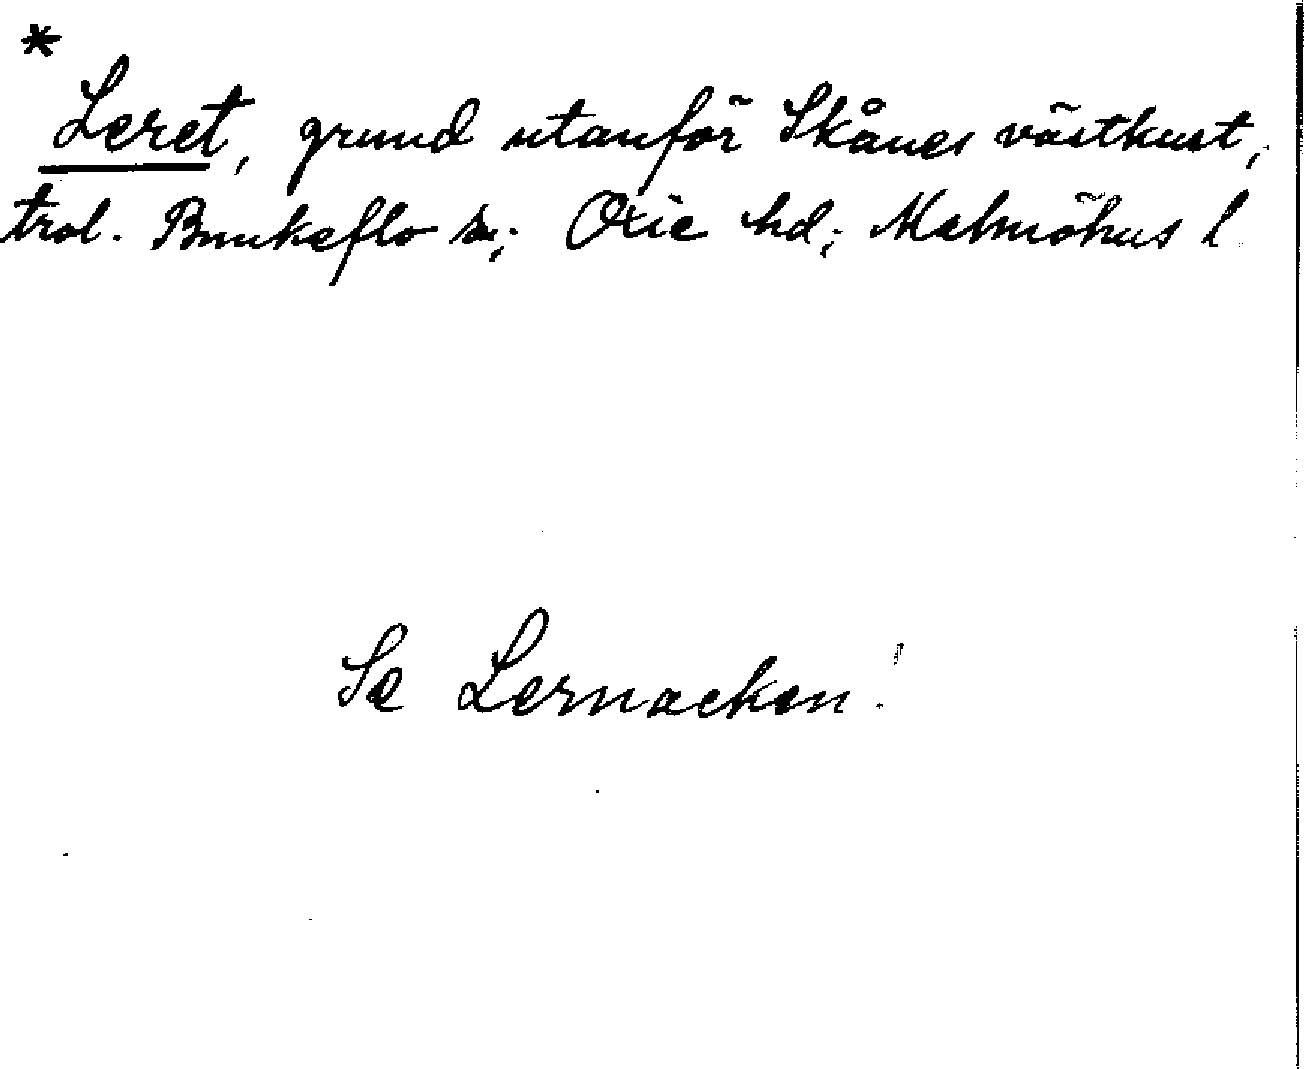 *
Leret, grund utanför Skånes västkust,
trol. Bunkeflo sn; Oxie hd; Malmöhus l.
Se Lernacken!